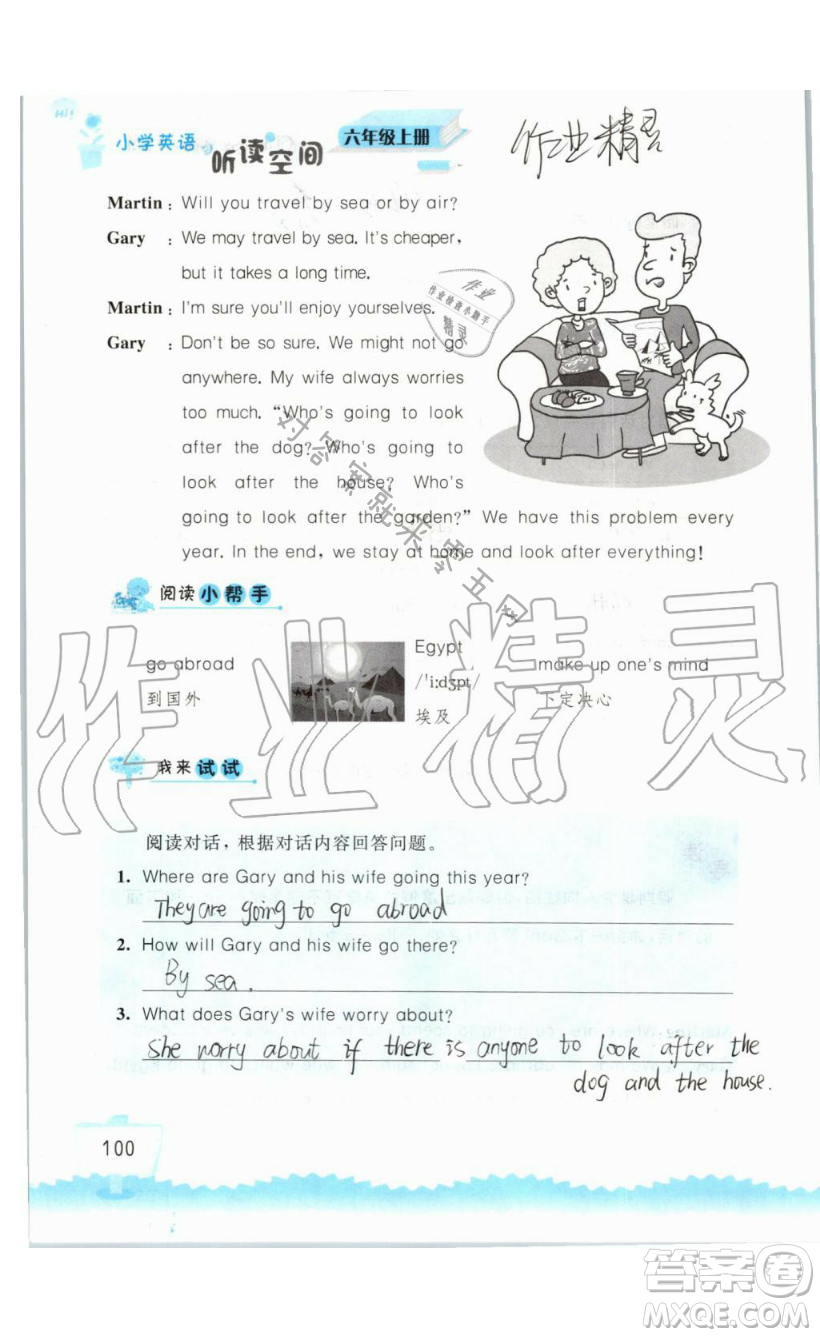 Hi!
小学英语 听读空间 六年级上册
作业精灵
Martin: Will you travel by sea or by air?
Gary : We may travel by sea. It's cheaper,
but it takes a long time.
Martin: I'm sure you'll enjoy yourselves.
Gary : Don't be so sure. We might not go
anywhere. My wife always worries
too much. "Who's going to look
after the dog? Who's going to
look after the house? Who's
going to look after the garden?" We have this problem every
year. In the end, we stay at home and look after everything!
作业
作业检查小助手
精灵
对答案就来零五网
阅读小帮手
go abroad
到国外
Egypt
/ˈiːdʒɪpt/
埃及
make up one's mind
下定决心
作业精灵
我来试试
阅读对话，根据对话内容回答问题。
1. Where are Gary and his wife going this year?
They are going to go abroad
2. How will Gary and his wife go there?
By sea.
3. What does Gary's wife worry about?
She worry about if there is anyone to look after the
dog and the house.
100
答案卷
MXQE.COM